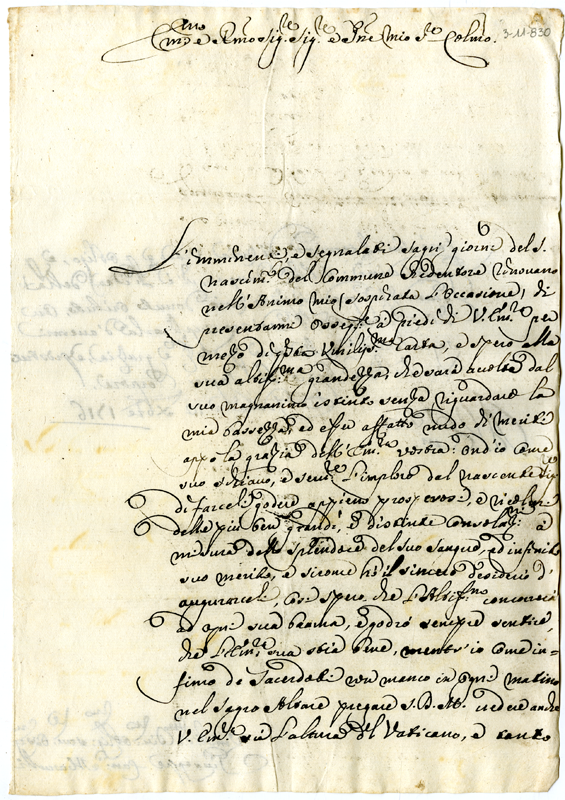 Em̃o e Rmo Sig.e Sig.e e Pne mio Sr Colmo.
3-11-830
L'imminenti, e segnalati sagri giorni del S.
nascim.to del Commune Redentore rinovano
nell'Animo mio sospirata l'occasione, di
presentarmi ossequ a' piedi di V. Em.a per
mezo di q.sta umiliss.ma Carta, e spero alla
sua altiss.ma grandezza, che sarà accolta dal
suo magnanimo istinto senza riguardare la
mia bassezza, ed esser affatto nudo di meriti
appo la grazia dell'Em.a vostra: ond'io come
suo schiavo, e serv.re l'imploro dal nascente Dio
di farcele godere appieno prosperose, e
delle più ben grandi, e distinte consolaz.ni à
misura dello splendore del suo sangue, ed infinito
suo merito, e siccome hò il sincero desiderio d'
augurarcele, così spero che l'Altiss.mo concorrerà
ad ogni sua brama, e godrò sempre sentire,
che l'Em.a sua stia bene, mentr'io come in=
fimo de Sacerdoti non manco in ogni matino
nel Sagro Altare pregare S. D. M. vedere anche
V. Em.a su l'alture del Vaticano, e tanto